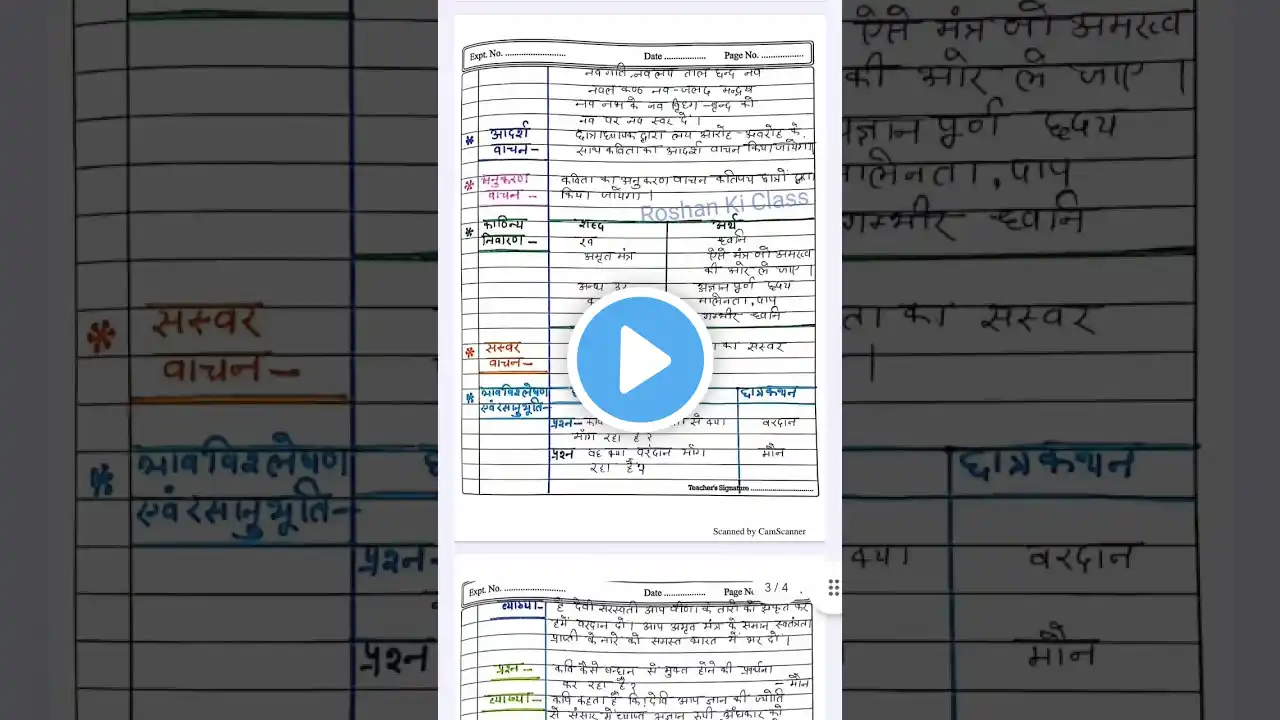 Expt. No. ........................ Date ................. Page No. .................
नव गति, नव लय ताल छन्द नव
नवल कण्ठ नव-जलद मन्द्रव
नव नभ के नव विहग-वृन्द को
नव पर नव स्वर दे।
* आदर्श वाचन – छात्राध्यापक द्वारा लय आरोह-अवरोह के
साथ कविता का आदर्श वाचन किया जायेगा
* अनुकरण वाचन – कविता का अनुकरण वाचन कतिपय छात्रों द्वारा
किया जायेगा।
Roshan Ki Class
* काठिन्य निवारण – शब्द अर्थ
रव ध्वनि
अमृत मंत्र ऐसे मंत्र जो अमरत्व
की ओर ले जाए।
अन्ध अज्ञान पूर्ण हृदय
मलिनता, पाप
गम्भीर ध्वनि
* सस्वर वाचन – का सस्वर
* भाव विश्लेषण एवं रसानुभूति – छात्रकथन
प्रश्न – से क्या वरदान
माँग रहा है?
प्रश्न वह क्या वरदान माँग मौन
रहा है?
Teacher's Signature ........................
Scanned by CamScanner
3 / 4
Expt. No. ........................ Date ................. Page No.
व्याख्या – हे देवी सरस्वती आप वीणा के तारों को झंकृत कर
हमें वरदान दो। आप अमृत मंत्र के समान स्वतंत्रता
प्राप्ती के नारे को समस्त भारत में भर दो।
प्रश्न – कवि कैसे बन्धन से मुक्त होने की प्रार्थना
कर रहा है? – मौन
व्याख्या – कवि कहता है कि! देवि आप ज्ञान की ज्योति
से संसार में व्याप्त अज्ञान रूपी अंधकार को
ऐसे मंत्र जो अमरत्व
की ओर ले जाए।
अज्ञान पूर्ण हृदय
मलिनता, पाप
गम्भीर ध्वनि
* सस्वर
वाचन –
ता का सस्वर
* भाव विश्लेषण
एवं रसानुभूति –
छात्रकथन
प्रश्न –
क्या वरदान
प्रश्न
मौन